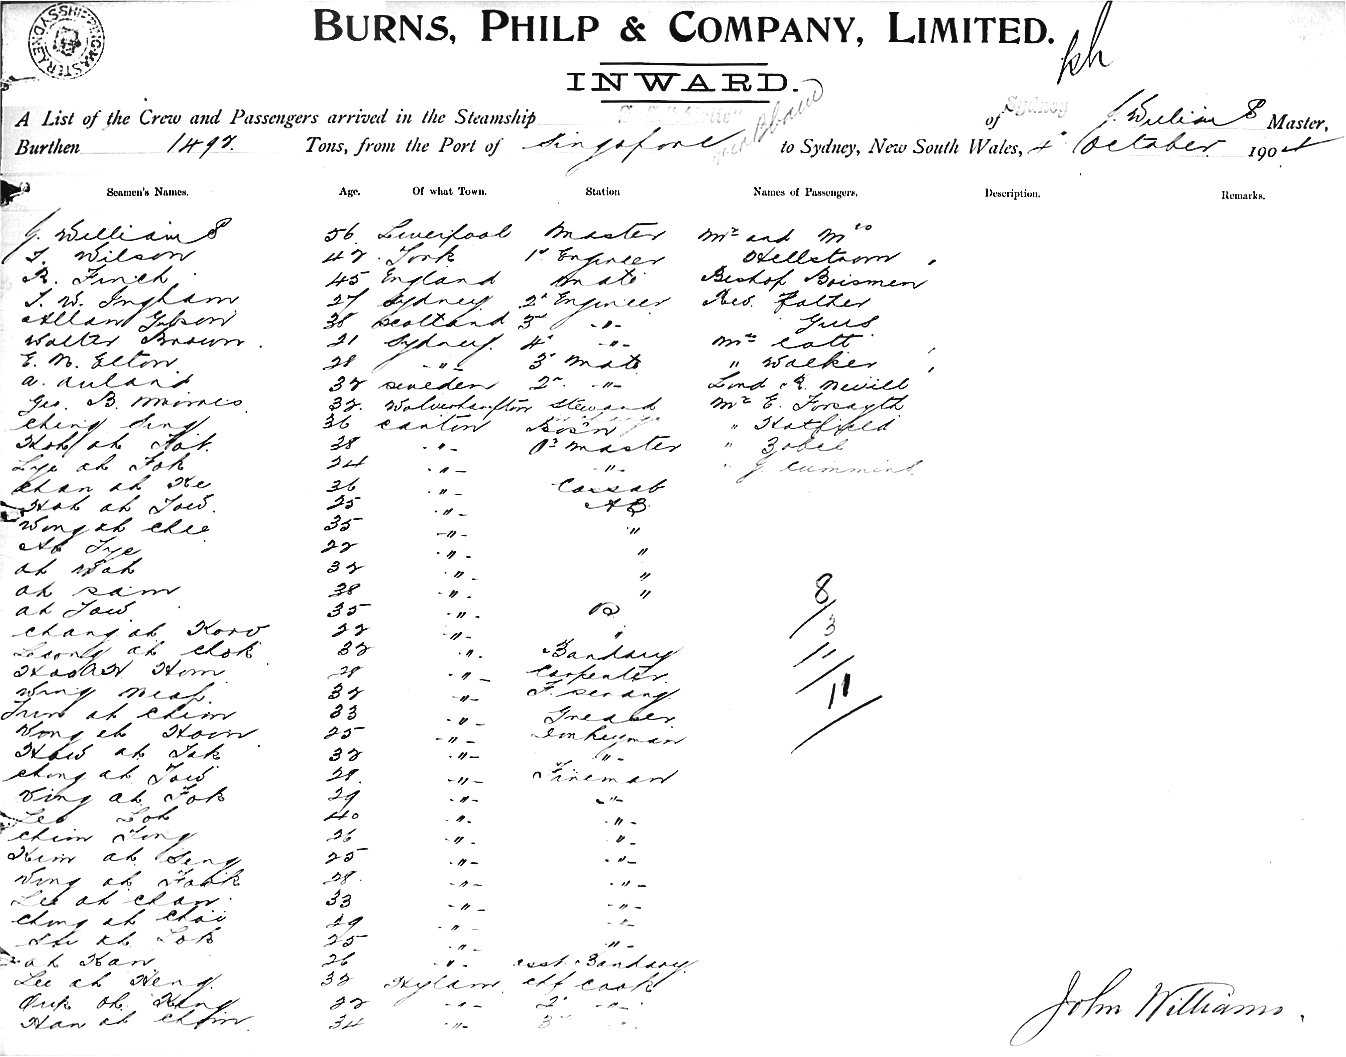 BURNS, PHILP & COMPANY, LIMITED.
INWARD.
A List of the Crew and Passengers arrived in the Steamship of Sydney J. Williams Master,
Burthen 1497. Tons, from the Port of Singapore to Sydney, New South Wales, October 190
Seamen's Names. Age. Of what Town. Station Names of Passengers. Description. Remarks.
J. Williams 56 Liverpool Master Mr and Mrs
Wilson 42 York 1st Engineer Hellstrom
R. Finch 45 England Mate Bishop Boismen
T. W. Ingham 27 Sydney 2d Engineer Rev. Father
Allan Gibson 38 Scotland 3rd -"-
Walter Brown 21 Sydney 4th -"- Mr Catt
E. N. Elton 28 -"- 3d Mate " Walker
a. auland 32 Sweden 2nd -"- Lord R. Nevill
Geo. B. Morris 32. Wolverhampton Steward Mr E. Forsayth
Ching Sing 36 Canton Bos'n " Hatfield
Hoh ah Fat 28 -"- Qr Master " Zobel
Lye ah Fok 24 -"- -"- " J Cummins
Chan ah Ke 36 -"- Cassab
Hoh ah Tow. 25 -"- AB
Wong ah Chee 35 -"- "
Ah Tye 22 -"- "
ah Wah 32 -"- "
ah Sam 38 -"- "
ah Tow 35 -"-
Chang ah Koow 22 -"- "
Leong ah Chok 32 -"- Bandary
Hom 28 -"- Carpenter
Wing 32 -"- F. Serang
ah Chim 33 -"- Greaser
Wong ah Hoon 25 -"- Donkeyman
How ah Tak 32 -"- -"-
Chong ah Tow 28 -"- Fireman
Wing ah Fok 29 -"- -"-
Lee Loh 40 -"- -"-
Chim Ting 26 -"- -"-
Kim ah Seng 25 -"- -"-
Wing ah Fook 28 -"- -"-
Lee ah Chan 33 -"- -"-
Chong ah Choi 29 -"- -"-
ah Lok 25 -"- -"-
ah Kan 26 -"- asst. Bandary
Lee ah Heng 32 Hylam chf cook
ah Kong 22 -"- 2d -"-
Han ah Chim 34 -"- 3rd -"-
8
3
11
11
John Williams.